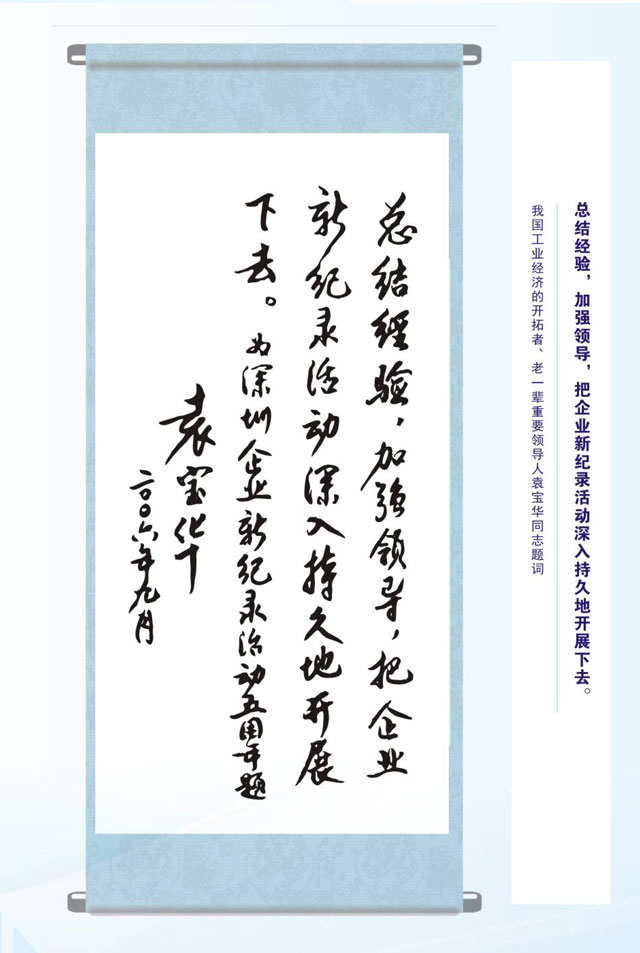 总结经验，加强领导，把企业新纪录活动深入持久地开展下去。
我国工业经济的开拓者、老一辈重要领导人袁宝华同志题词
总结经验，加强领导，把企业
新纪录活动深入持久地开展
下去。为深圳企业新纪录活动五周年题
袁宝华
二〇〇六年九月